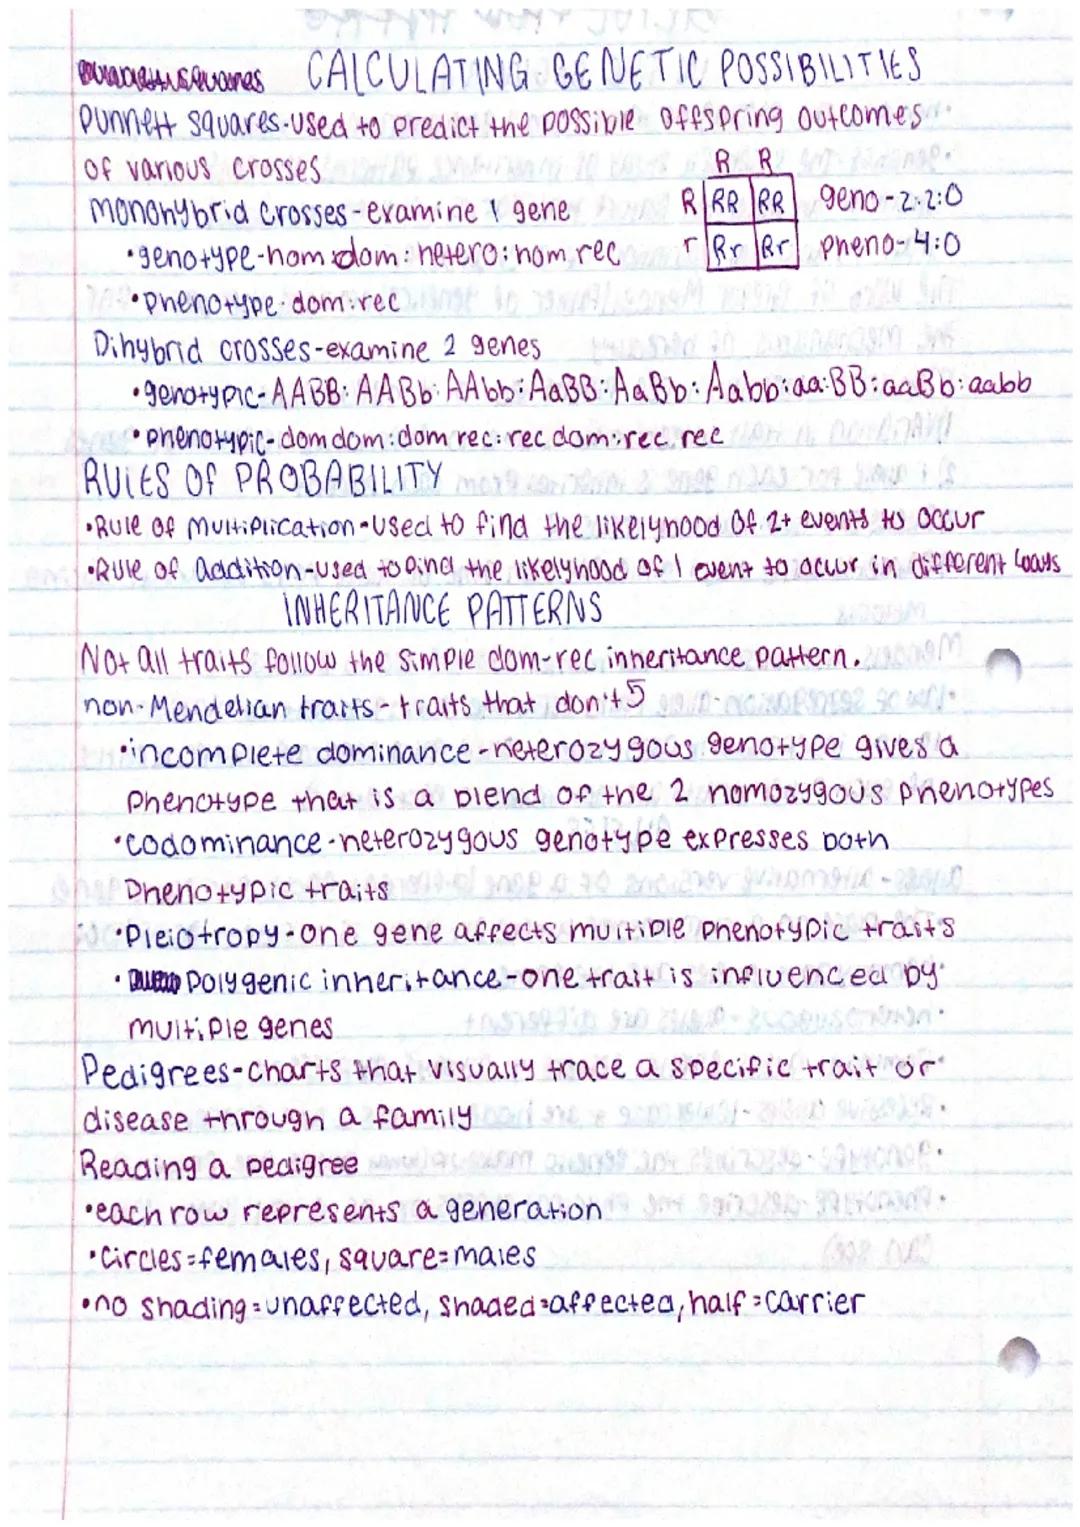 CALCULATING GENETIC POSSIBILITIES
Punnett squares-used to predict the possible offspring outcomes
of various crosses
R R
monohybrid crosses-examine 1 gene
R RR RR geno-2:2:0
•genotype-hom dom: hetero: hom rec
r Rr Rr pheno-4:0
•phenotype-dom:rec
Dihybrid crosses-examine 2 genes
•genotypic-AABB: AABb: AAbb: AaBB: AaBb: Aabb: aaBB: aaBb: aabb
•phenotypic-dom dom: dom rec: rec dom: rec rec
RULES OF PROBABILITY
•Rule of multiplication-used to find the likelyhood of 2+ events to occur
•Rule of addition-used to find the likelyhood of 1 event to occur in different ways
INHERITANCE PATTERNS
Not all traits follow the simple dom-rec inheritance pattern.
non-Mendelian traits-traits that don't
•incomplete dominance-heterozygous genotype gives a
phenotype that is a blend of the 2 homozygous phenotypes
•codominance-heterozygous genotype expresses both
phenotypic traits
•Pleiotropy-one gene affects multiple phenotypic traits
•polygenic inheritance-one trait is influenced by
multiple genes
Pedigrees-charts that visually trace a specific trait or
disease through a family
Reading a pedigree
•each row represents a generation
•Circles=females, square=males
•no shading=unaffected, shaded=affected, half=carrier